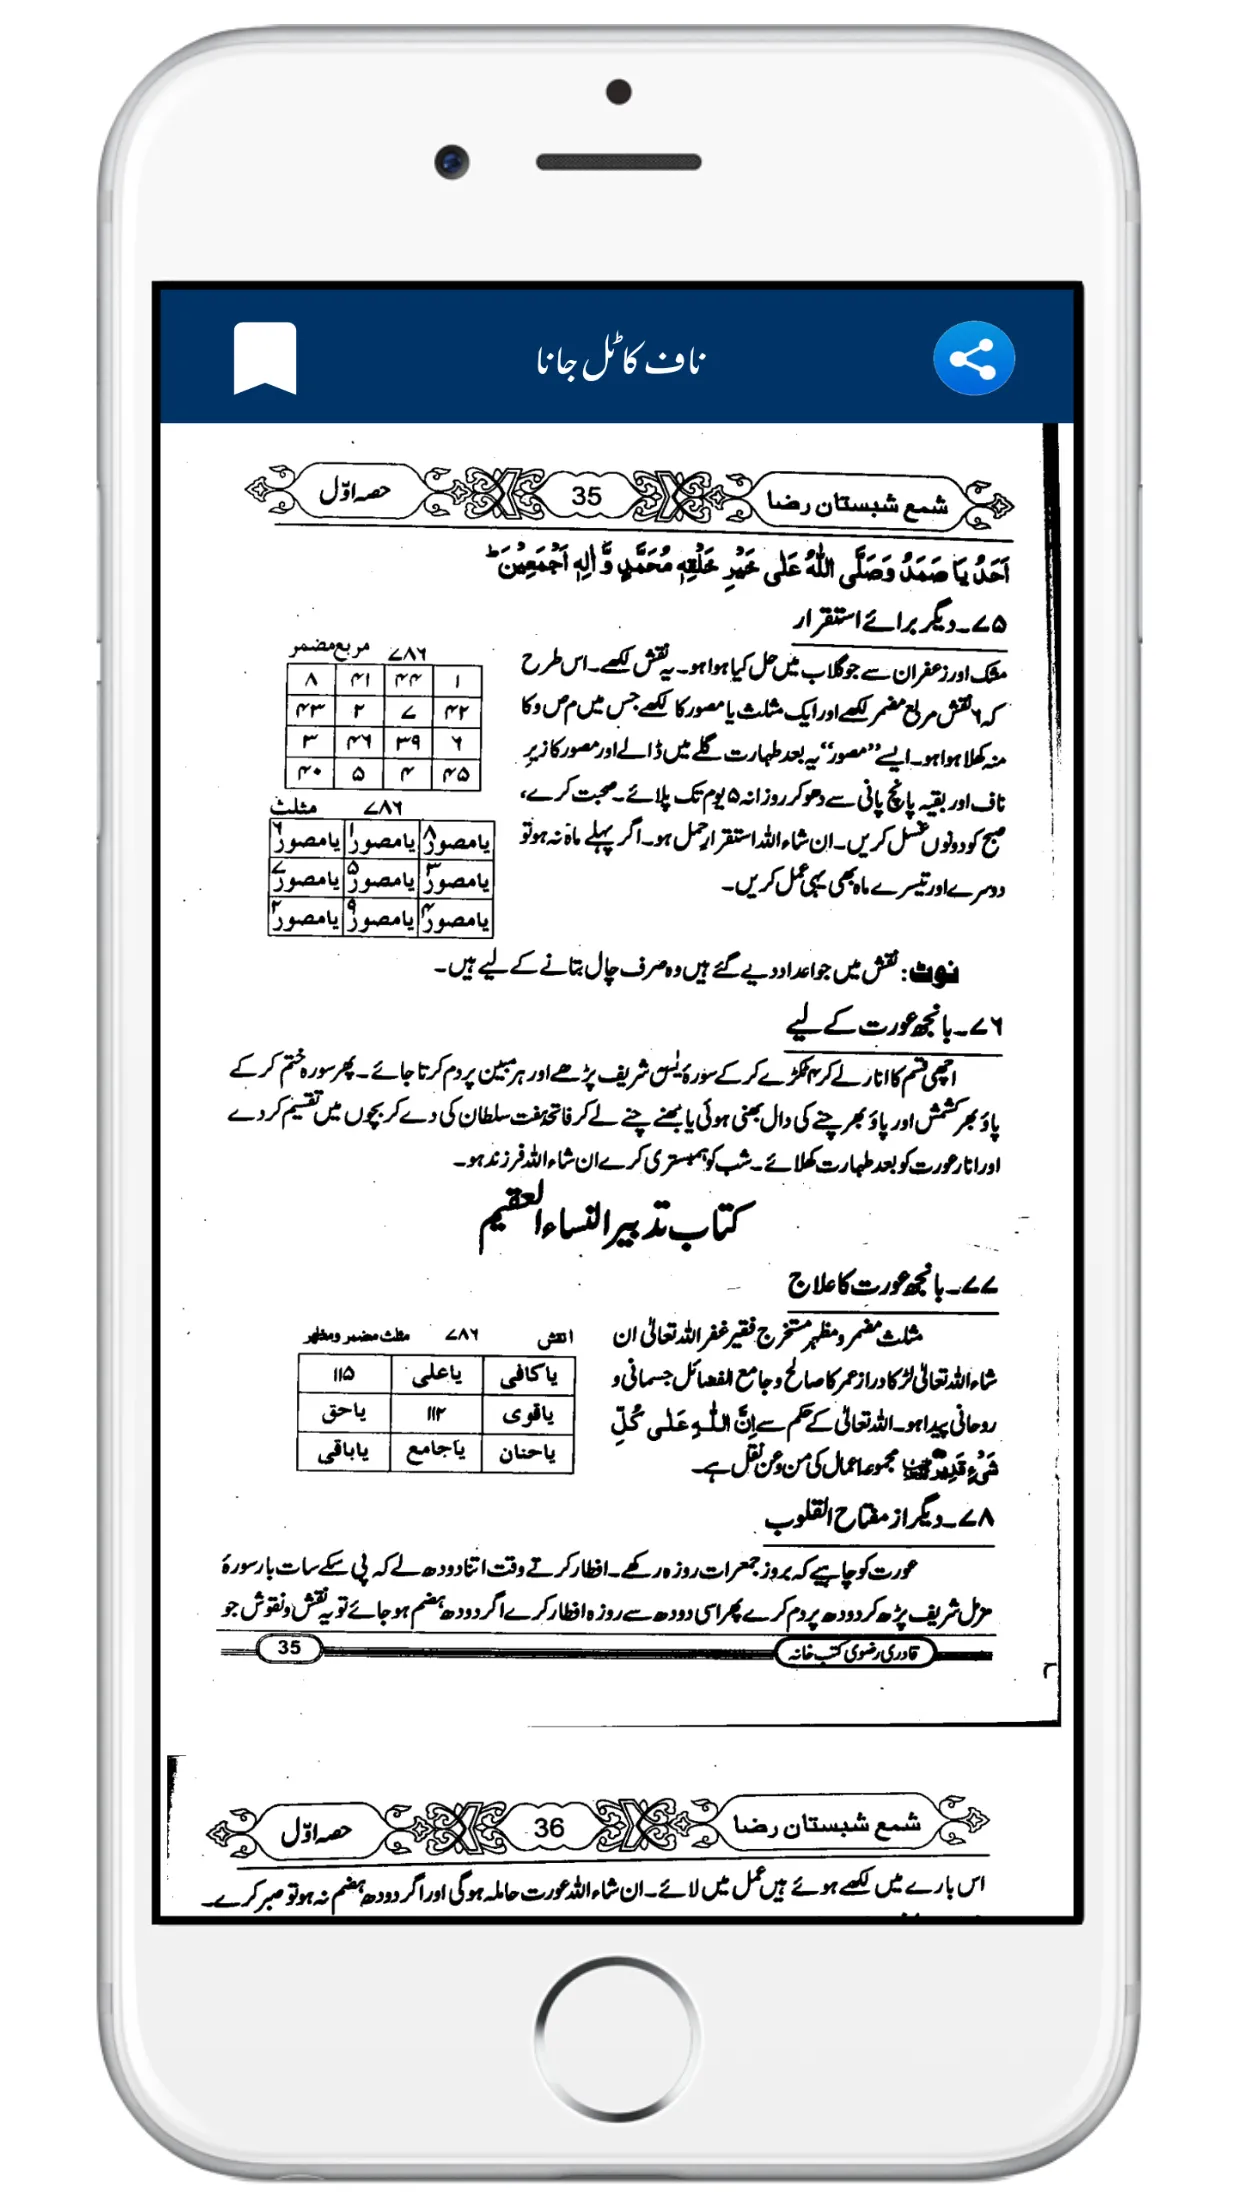 ناف کا ٹل جانا
شمع شبستان رضا 35 حصہ اوّل
اَحَدُ یَا صَمَدُ وَصَلَّی اللّٰهُ عَلٰی خَیْرِ خَلْقِهٖ مُحَمَّدٍ وَّاٰلِهٖ اَجْمَعِیْنَ ؕ
۷۵۔ دیگر برائے استقرار
مشک اور زعفران سے جو گلاب میں حل کیا ہوا ہو۔ یہ نقش لکھے۔ اس طرح
کہ ۶ نقش مربع مضمر لکھے اور ایک مثلث یا مصور کا لکھے جس میں م ص و کا
منہ کھلا ہوا ہو۔ ایسے ’’مصور‘‘ یہ بعد طہارت گلے میں ڈالے اور مصور کا زیرِ
ناف اور بقیہ پانچ پانی سے دھو کر روزانہ ۵ یوم تک پلائے۔ صحبت کرے،
صبح کو دونوں غسل کریں۔ ان شاء اللہ استقرار حمل ہو۔ اگر پہلے ماہ نہ ہو تو
دوسرے اور تیسرے ماہ بھی یہی عمل کریں۔
۷۸۶ مربع مضمر
۱ ۴۴ ۴۱ ۸
۴۲ ۷ ۲ ۴۳
۶ ۳۹ ۴۶ ۳
۴۵ ۴ ۵ ۴۰
۷۸۶ مثلث
یا مصور ۸ یا مصور ۱ یا مصور ۶
یا مصور ۳ یا مصور ۵ یا مصور ۷
یا مصور ۴ یا مصور ۹ یا مصور ۲
نوٹ: نقش میں جو اعداد دیے گئے ہیں وہ صرف چال بتانے کے لیے ہیں۔
۷۶۔ بانجھ عورت کے لیے
اچھی قسم کا انار لے کر ۴ ٹکڑے کر کے سورۂ یٰسٓ شریف پڑھے اور ہر مبین پر دم کرتا جائے۔ پھر سورہ ختم کر کے
پاؤ بھر کشمش اور پاؤ بھر چنے کی دال بھنی ہوئی یا بھنے چنے لے کر فاتحہ ہفت سلطان کی دے کر بچوں میں تقسیم کر دے
اور انار عورت کو بعد طہارت کھلائے۔ شب کو ہمبستری کرے ان شاء اللہ فرزند ہو۔
کتاب تدبیر النساء العقیم
۷۷۔ بانجھ عورت کا علاج
مثلث مضمر و مظہر مستخرج فقیر غفر اللہ تعالیٰ ان
شاء اللہ تعالیٰ لڑکا دراز عمر کا صالح و جامع الفضائل جسمانی و
روحانی پیدا ہو۔ اللہ تعالیٰ کے حکم سے اِنَّ اللّٰهَ عَلٰی کُلِّ
شَیْءٍ قَدِیْر مجموعہ اعمال کی من و عن نقل ہے۔
نقش ۷۸۶ مثلث مضمر و مظہر
یا کافی یا علی ۱۱۵
یا قوی ۱۱۲ یا حق
یا حنان یا جامع یا باقی
۷۸۔ دیگر از مفتاح القلوب
عورت کو چاہیے کہ بروز جمعرات روزہ رکھے۔ افطار کرتے وقت اتنا دودھ لے کہ پی سکے سات بار سورۂ
مزمل شریف پڑھ کر دودھ پر دم کرے پھر اسی دودھ سے روزہ افطار کرے اگر دودھ ہضم ہو جائے تو یہ نقش و نقوش جو
قادری رضوی کتب خانہ 35
شمع شبستان رضا 36 حصہ اوّل
اس بارے میں لکھے ہوئے ہیں عمل میں لائے۔ ان شاء اللہ عورت حاملہ ہوگی اور اگر دودھ ہضم نہ ہو تو صبر کرے۔